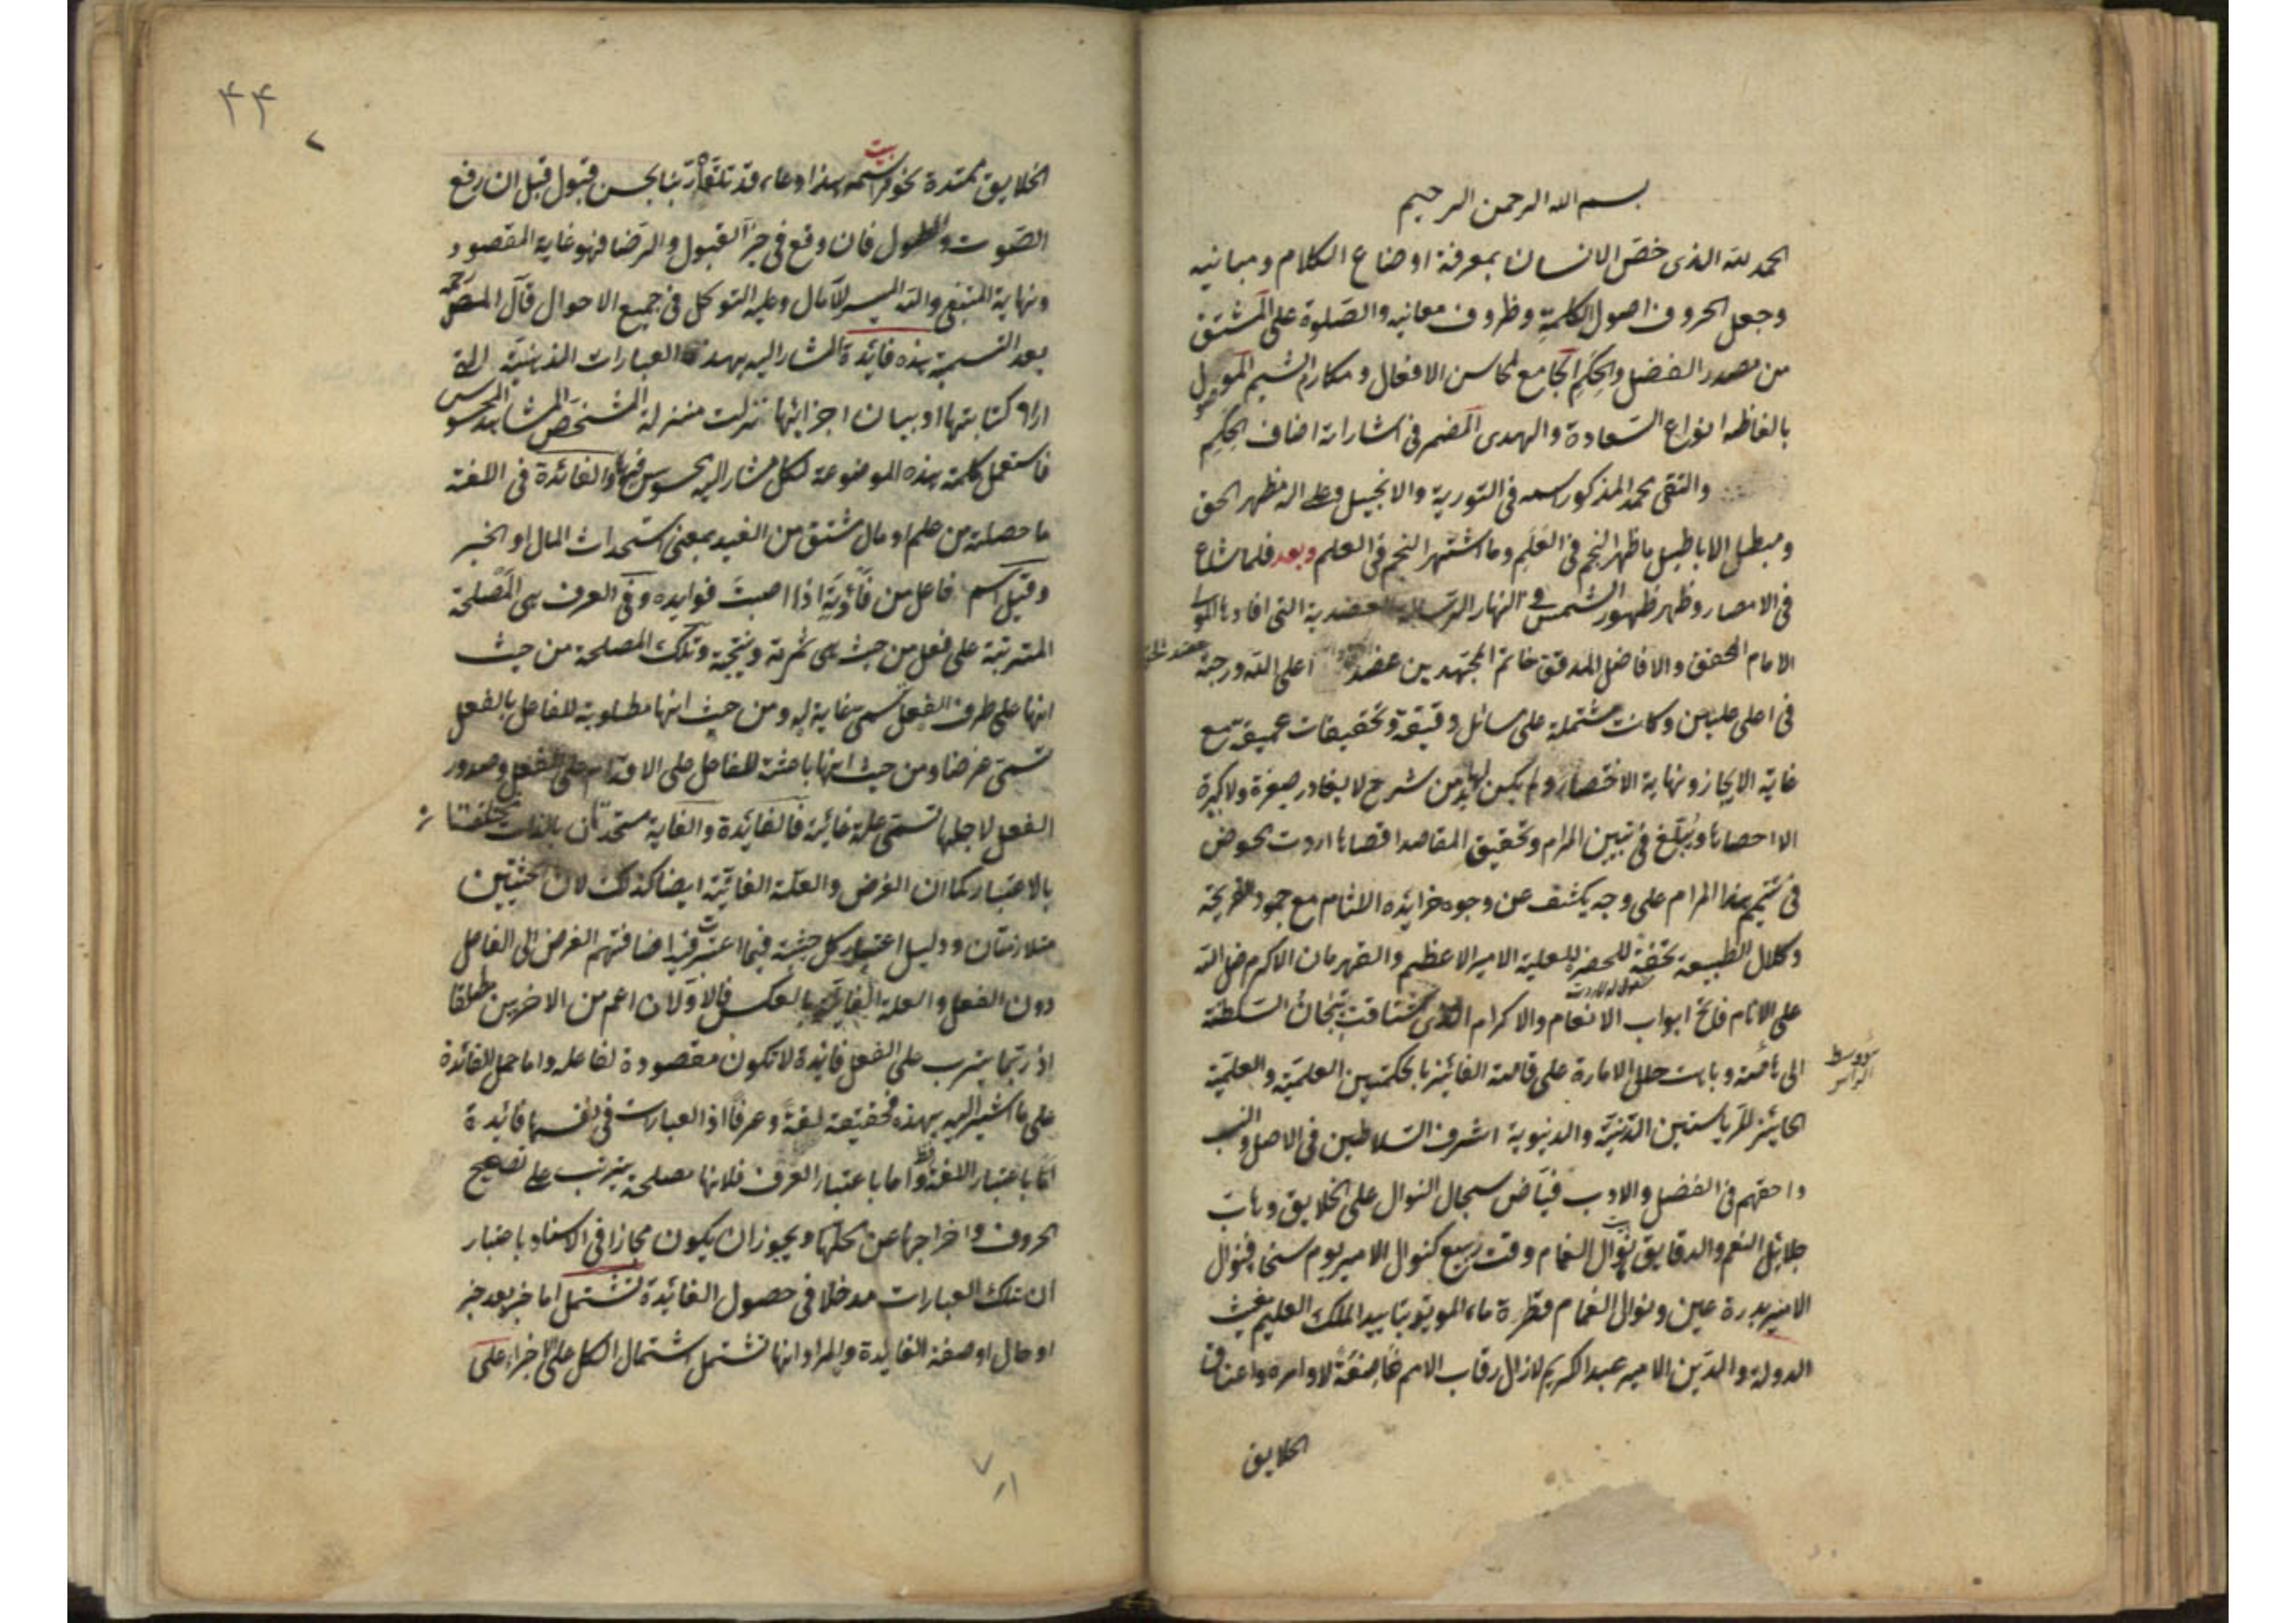 بسم الله الرحمن الرحيم
الحمد لله الذى خص الانسان بمعرفة اوضاع الكلام ومبانيه
وجعل الحروف اصول الكلمة وظروف معانيه والصلوة على المشتق
من مصدر الفضل والحكم الجامع لمحاسن الافعال ومكارم الشيم الموصول
بالفاظه انواع السعادة والهدى المضمر فى اشاراته اضاف الحكم
والتقى محمد المذكور اسمه فى التورية والانجيل وعلى اله مظهر الحق
ومبطل الاباطيل ما ظهر النجم فى الظلم وما اشتهر النجم فى العلم وبعد فلما شاع
فى الامصار وظهر ظهور الشمس فى النهار الرسالة العضدية التى افادها المولى
الامام المحقق والافاضل المدقق خاتم المجتهدين عضد اعلى الله درجته
فى اعلى عليين وكانت مشتملة على مسائل دقيقة وتحقيقات عميقة مع
غاية الايجاز ونهاية الاختصار ولم يكن لها بد من شرح لا يغادر صغيرة ولا كبيرة
الا احصاها ويبلغ فى تبيين المرام وتحقيق المقاصد اقصاها اردت نخوض
فى تتميم هذا المرام على وجه يكشف عن وجوه خرايده اللثام مع جمود القريحة
وكلال الطبيعة تحفة للحضرة العلية الامير الاعظم والقهرمان الاكرم ظل الله
على الانام فاتح ابواب الانعام والاكرام الذى اشتاقت تيجان السلطنة
الى هامته وباهت حلل الامارة على قامته الفائز بالحكمتين العلمية والعملية
الحائز للرياستين الدينية والدنيوية اشرف السلاطين فى الاصل والنسب
واحقهم فى الفضل والادب فياض سجال النوال على الخلايق وهاب
جلايل النعم والدقايق نوال الغمام وقت ربيع كنوال الامير يوم سخا فنوال
الامير بدرة عين ونوال الغمام قطرة ماء المويد بتاييد الملك العليم مغيث
الدولة والدين الامير عبد الكريم لا زال رقاب الامم خاضعة لاوامره واعناق
الخلايق
وسط
الراس
۴۴
الخلايق ممتدة نحو مراسمه هذا دعاء قد تلقاه ربنا بحسن قبول قبل ان رفع
الصوت فان وقع فى حيز القبول والرضا فهو غاية المقصود
ونهاية المبتغى والله الميسر للآمال وعليه التوكل فى جميع الاحوال قال المص رحمه
بعد التسمية هذه فائدة المشار اليه بهذه العبارات الذهنية التى
اراد كتابتها او بيان اجزائها نزلت منزلة المشخص المشاهد المحسوس
فاستعمل كلمة هذه الموضوعة لكل مشار اليه محسوس فيها والفائدة فى اللغة
ما حصلته من علم او مال مشتق من الفيد بمعنى استحداث المال او الخير
وقيل اسم فاعل من فأدته اذا اصبت فوايده وفى العرف هى المصلحة
المترتبة على فعل من حيث هى ثمرته ونتيجته وتلك المصلحة من حيث
انها على طرف الفعل تسمى غاية له ومن حيث انها مطلوبة للفاعل بالفعل
تسمى غرضا ومن حيث انها باعثة للفاعل على الاقدام على الفعل وصدور
الفعل لاجلها تسمى علة غائية فالفائدة والغاية متحدتان بالذات مختلفتان
بالاعتبار كما ان الغرض والعلة الغائية ايضا كذلك لان الحيثيتين
متلازمتان ودليل اعتبار كل حيثية فيما اعتبرت فيه اضافتهم الغرض الى الفاعل
دون الفعل والعلة الغائية بالعكس فالاولان اعم من الاخريين مطلقا
اذ ربما يترتب على الفعل فائدة لا تكون مقصودة لفاعله واما حمل الفائدة
على ما اشير اليه بهذه فحقيقة لغة وعرفا اذ العبارات فى انفسها فائدة
اما باعتبار اللغة فظ واما باعتبار العرف فلانها مصلحة يترتب على تصحيح
الحروف واخراجها عن محلها ويجوز ان يكون مجازا فى الاسناد باعتبار
ان لتلك العبارات مدخلا فى حصول الفائدة تشتمل اما خبر بعد خبر
او حال او صفة الفايدة والمراد انها تشتمل اشتمال الكل على الاجزاء على